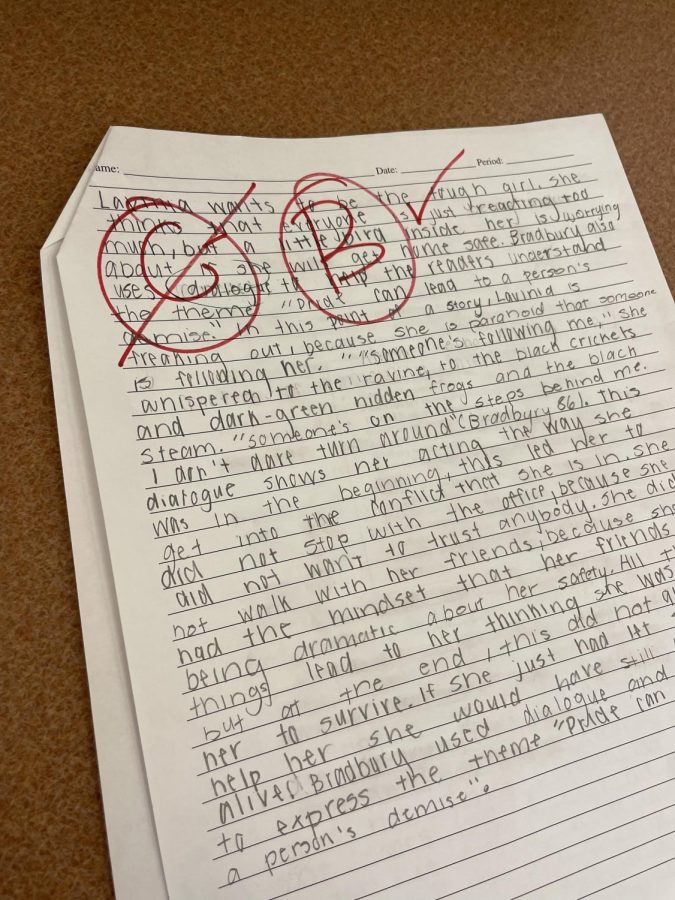 ame: Date: Period:
C B
Lavinia wants to be the tough girl. she
thinks that everyone is just reacting too
much, but a little part inside her is worrying
about if she will get home safe. Bradbury also
uses dialogue to help the readers understand
the theme "Pride can lead to a person's
demise." In this point of a story, Lavinia is
freaking out, because she is paranoid that someone
is following her. "someone's following me," she
whispered to the ravine, to the black crickets
and dark-green hidden frogs and the black
steam. "someone's on the steps behind me.
I don't dare turn around" (Bradbury 86). this
dialogue shows her acting the way she
was in the beginning, this led her to
get into the conflict that she is in. she
did not stop with the office, because she
did not want to trust anybody. she did
not walk with her friends, because she
had the mindset that her friends
being dramatic about her safety. All
things lead to her thinking she was
but at the end, this did not
her to survive. If she just had let
help her she would have still
alive. Bradbury used dialogue and
to express the theme "Pride can
a person's demise".